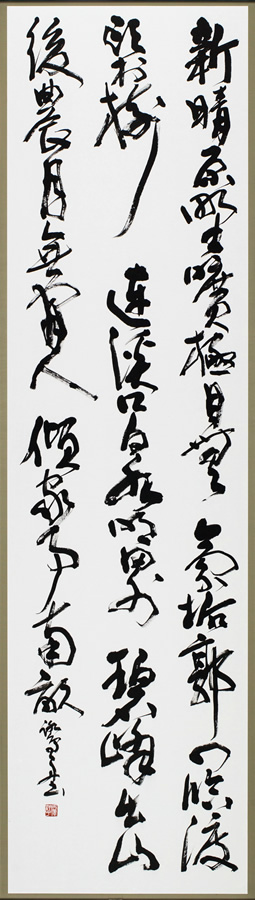 新晴原野曠極目無氛垢郭門臨渡
頭村樹連溪口白水明田外碧峰出山
後農月無閑人傾家事南畝